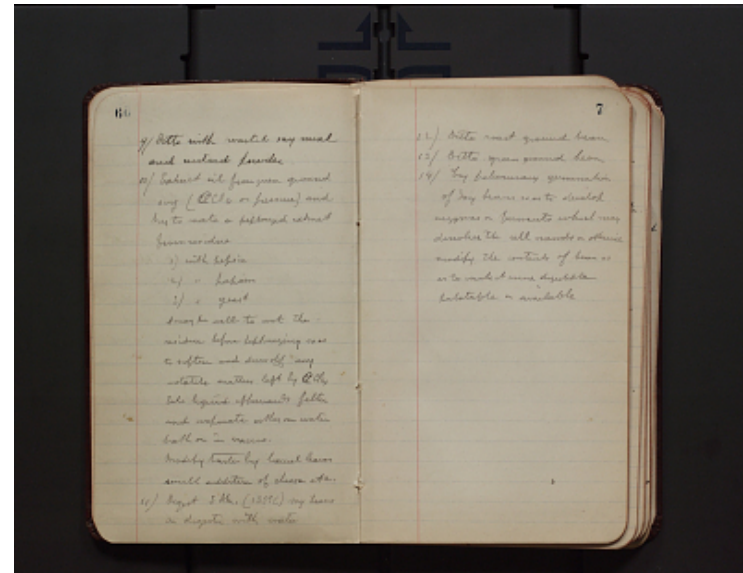 66
9/ Ditto with roasted soy meal
and mustard powder
10/ Extract oil from ground
soy ( CCl4 or pressure) and
try to make a peptonized extract
from residue
1) with pepsin
2) " papain
3) " yeast
to the
residue before peptonizing so as
to soften and drive off any
volatile matter left by CCl4
liquid afterwards filter
and evaporate either on water
bath or in vacuo.
Modify taste by laurel leaves
small addition of cheese etc.
11/ Digest 3 Atm. soy beans
in digestor with water
7
12/ Ditto roast ground bean
13/ Ditto green ground bean
14/ Try preliminary germination
of soy beans so as to develop
enzymes or ferments which may
dissolve the cell or otherwise
modify the contents of bean so
as to make it more digestible
palatable or available